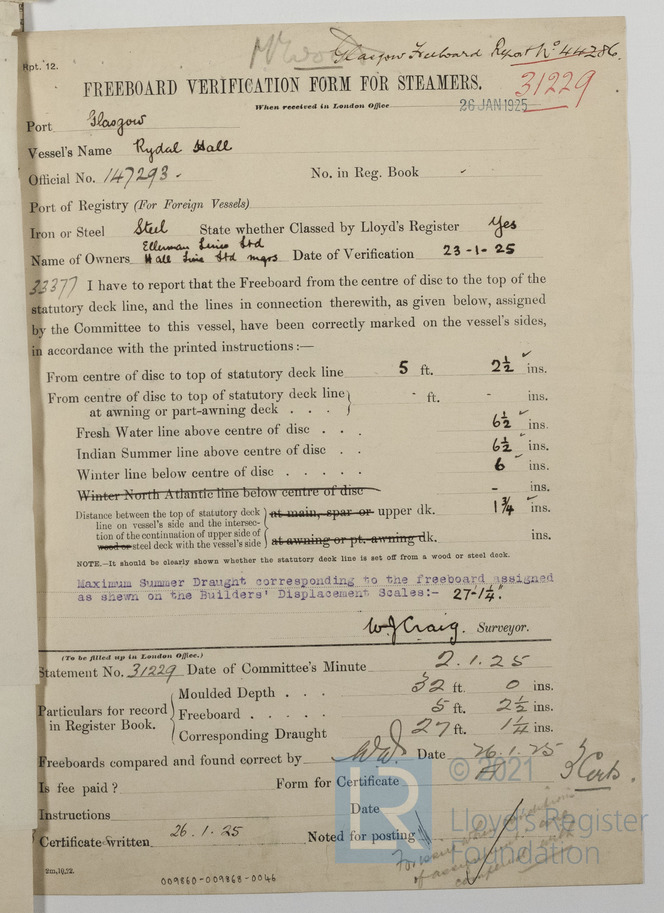 Rpt. 12.
Glasgow Freeboard Report No 44286.
FREEBOARD VERIFICATION FORM FOR STEAMERS.
31229
When received in London Office 26 JAN 1925
Port Glasgow
Vessel's Name Rydal Hall
Official No. 147293. No. in Reg. Book -
Port of Registry (For Foreign Vessels)
Iron or Steel Steel State whether Classed by Lloyd's Register Yes
Ellerman Lines Ltd
Name of Owners Hall Line Ltd mgrs Date of Verification 23-1-25
33377 I have to report that the Freeboard from the centre of disc to the top of the
statutory deck line, and the lines in connection therewith, as given below, assigned
by the Committee to this vessel, have been correctly marked on the vessel's sides,
in accordance with the printed instructions:—
From centre of disc to top of statutory deck line 5 ft. 2½ ins.
From centre of disc to top of statutory deck line
at awning or part-awning deck . . . - ft. - ins.
Fresh Water line above centre of disc . . . 6½ ins.
Indian Summer line above centre of disc . . 6½ ins.
Winter line below centre of disc . . . . . 6 ins.
Winter North Atlantic line below centre of disc - ins.
Distance between the top of statutory deck
line on vessel's side and the intersec-
tion of the continuation of upper side of
wood or steel deck with the vessel's side
at main, spar or upper dk. 1¾ ins.
at awning or pt. awning dk. ins.
NOTE.—It should be clearly shown whether the statutory deck line is set off from a wood or steel deck.
Maximum Summer Draught corresponding to the freeboard assigned
as shewn on the Builders' Displacement Scales:- 27-1¼".
W J Craig. Surveyor.
(To be filled up in London Office.)
Statement No. 31229 Date of Committee's Minute 2.1.25
Particulars for record
in Register Book.
Moulded Depth . . . 32 ft. 0 ins.
Freeboard . . . . . 5 ft. 2½ ins.
Corresponding Draught 27 ft. 1¼ ins.
Freeboards compared and found correct by Date 26.1.25
Is fee paid? Form for Certificate 3 Certs.
Instructions Date
Certificate written 26.1.25 Noted for posting
2m,10,22.
009860-009868-0046
© 2021
LR
Lloyd's Register
Foundation